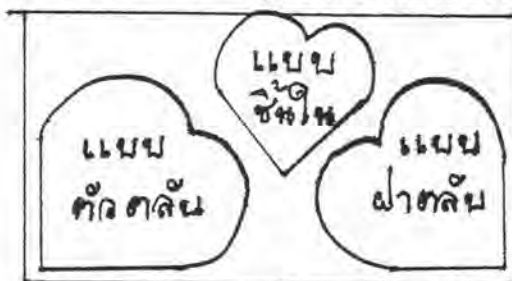 แบบ
ชิ้นใน
แบบ
ตัวตลับ
แบบ
ฝาตลับ